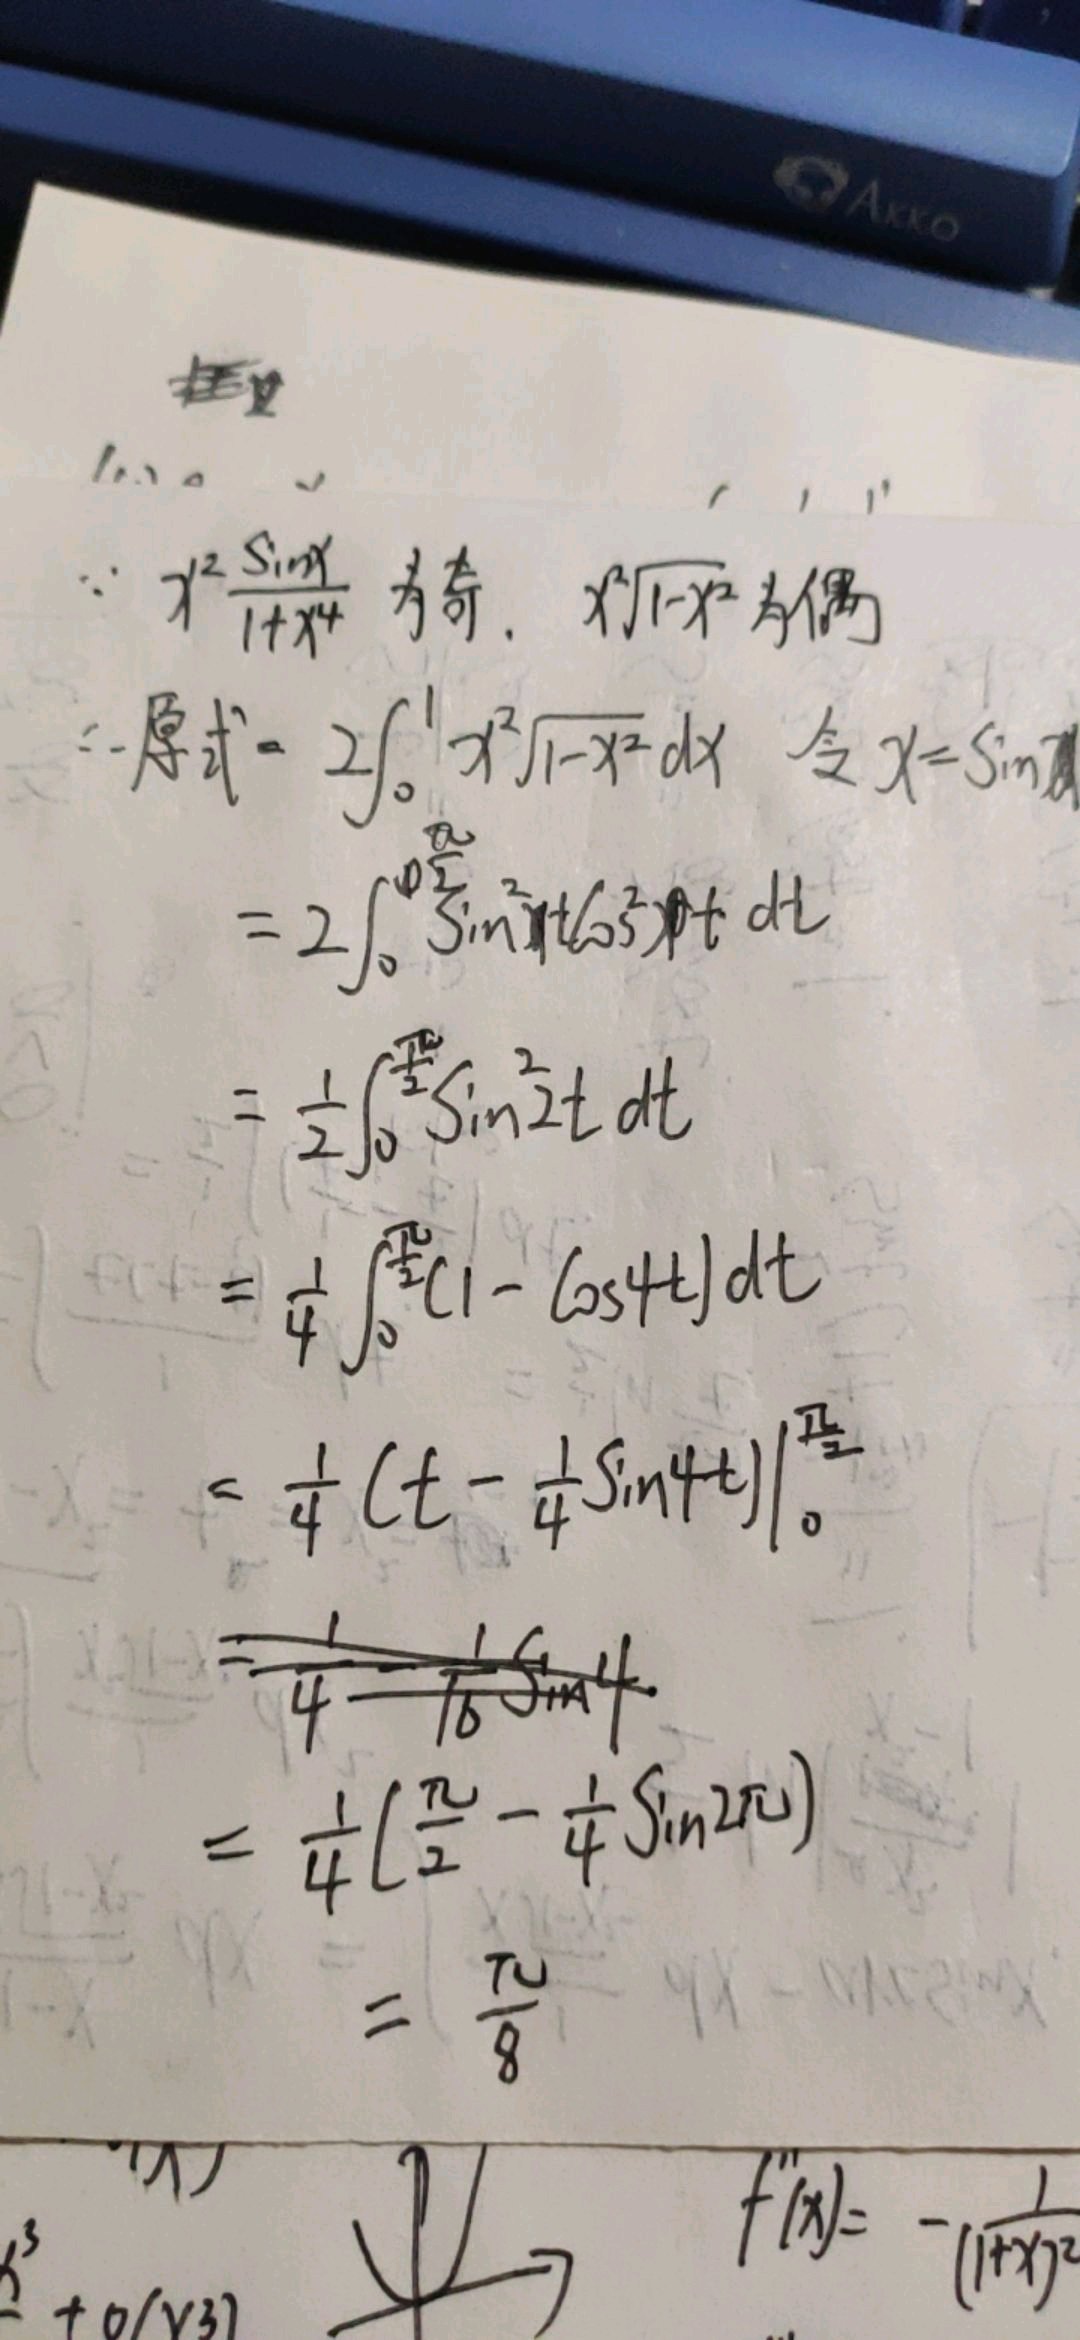 AKKO
∵ x² sinx/(1+x⁴) 为奇. x²√(1-x²) 为偶
∴ 原式 = 2∫₀¹ x²√(1-x²) dx 令 x = sin
= 2∫₀^(π/2) sin²t cos²t dt
= 1/2 ∫₀^(π/2) sin²2t dt
= 1/4 ∫₀^(π/2) (1 - cos4t) dt
= 1/4 (t - 1/4 sin4t) |₀^(π/2)
= 1/4 - 1/16 sin4
= 1/4 (π/2 - 1/4 sin2π)
= π/8
f''(x) = - 1/(1+x)²
x³
+ o(x³)